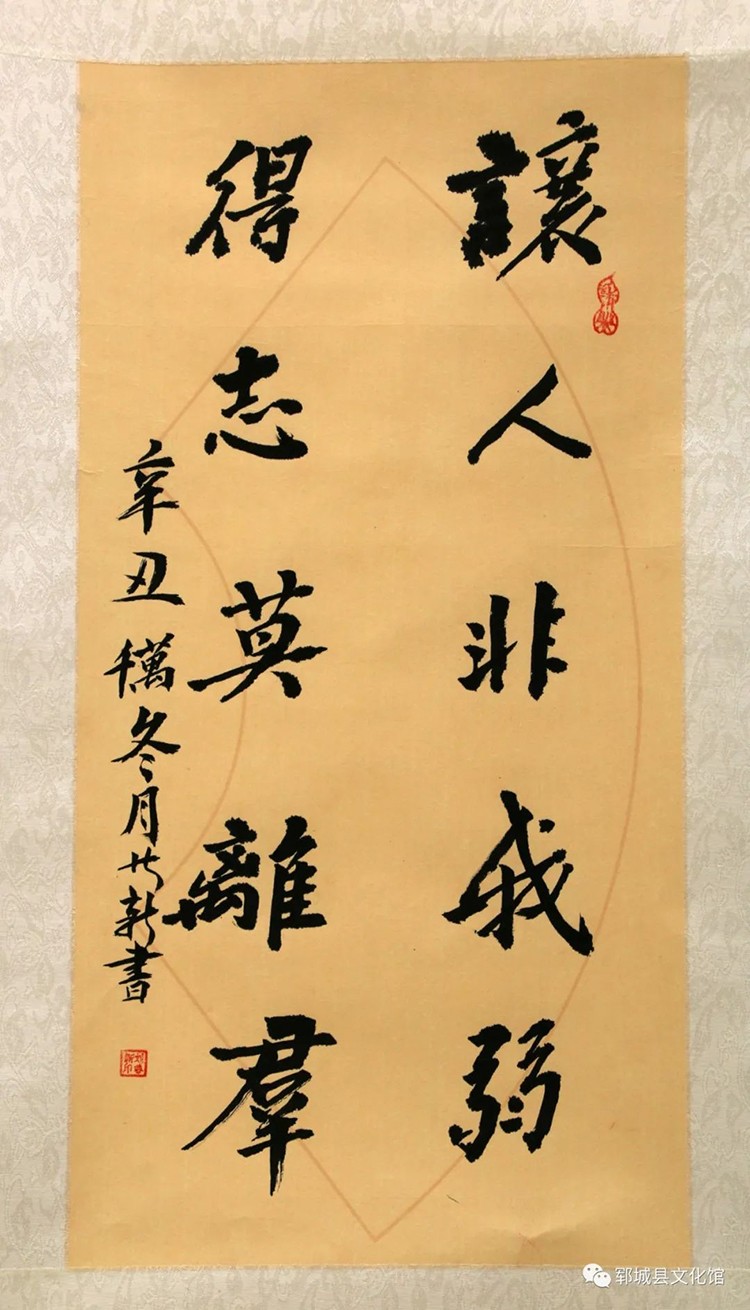 讓人非我弱
得志莫離羣
辛丑
冬月
新書
郓城县文化馆